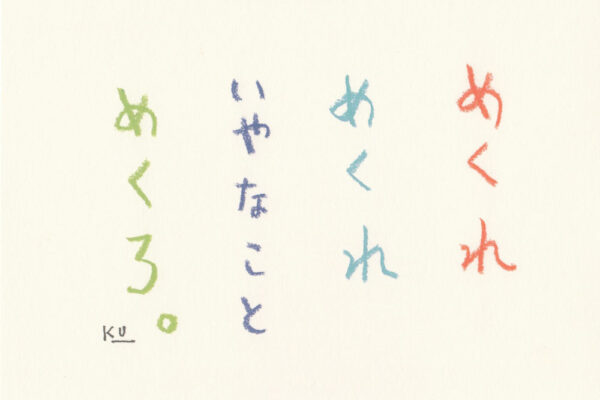 めくれ
めくれ
いやなこと
めくろ。
KU